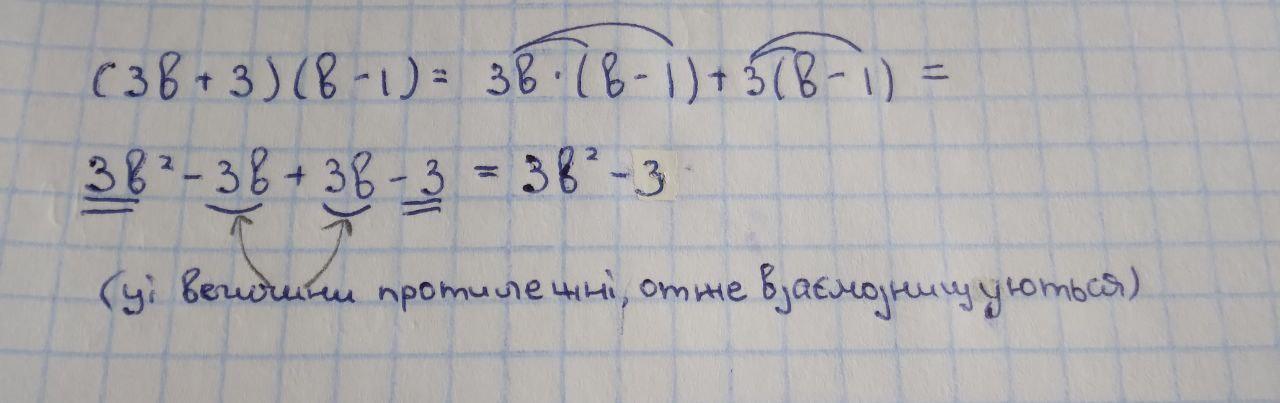 (3в + 3)(в - 1) = 3в · (в - 1) + 3(в - 1) =
3в² - 3в + 3в - 3 = 3в² - 3
(ці величини протилежні, отже взаємознищуються)